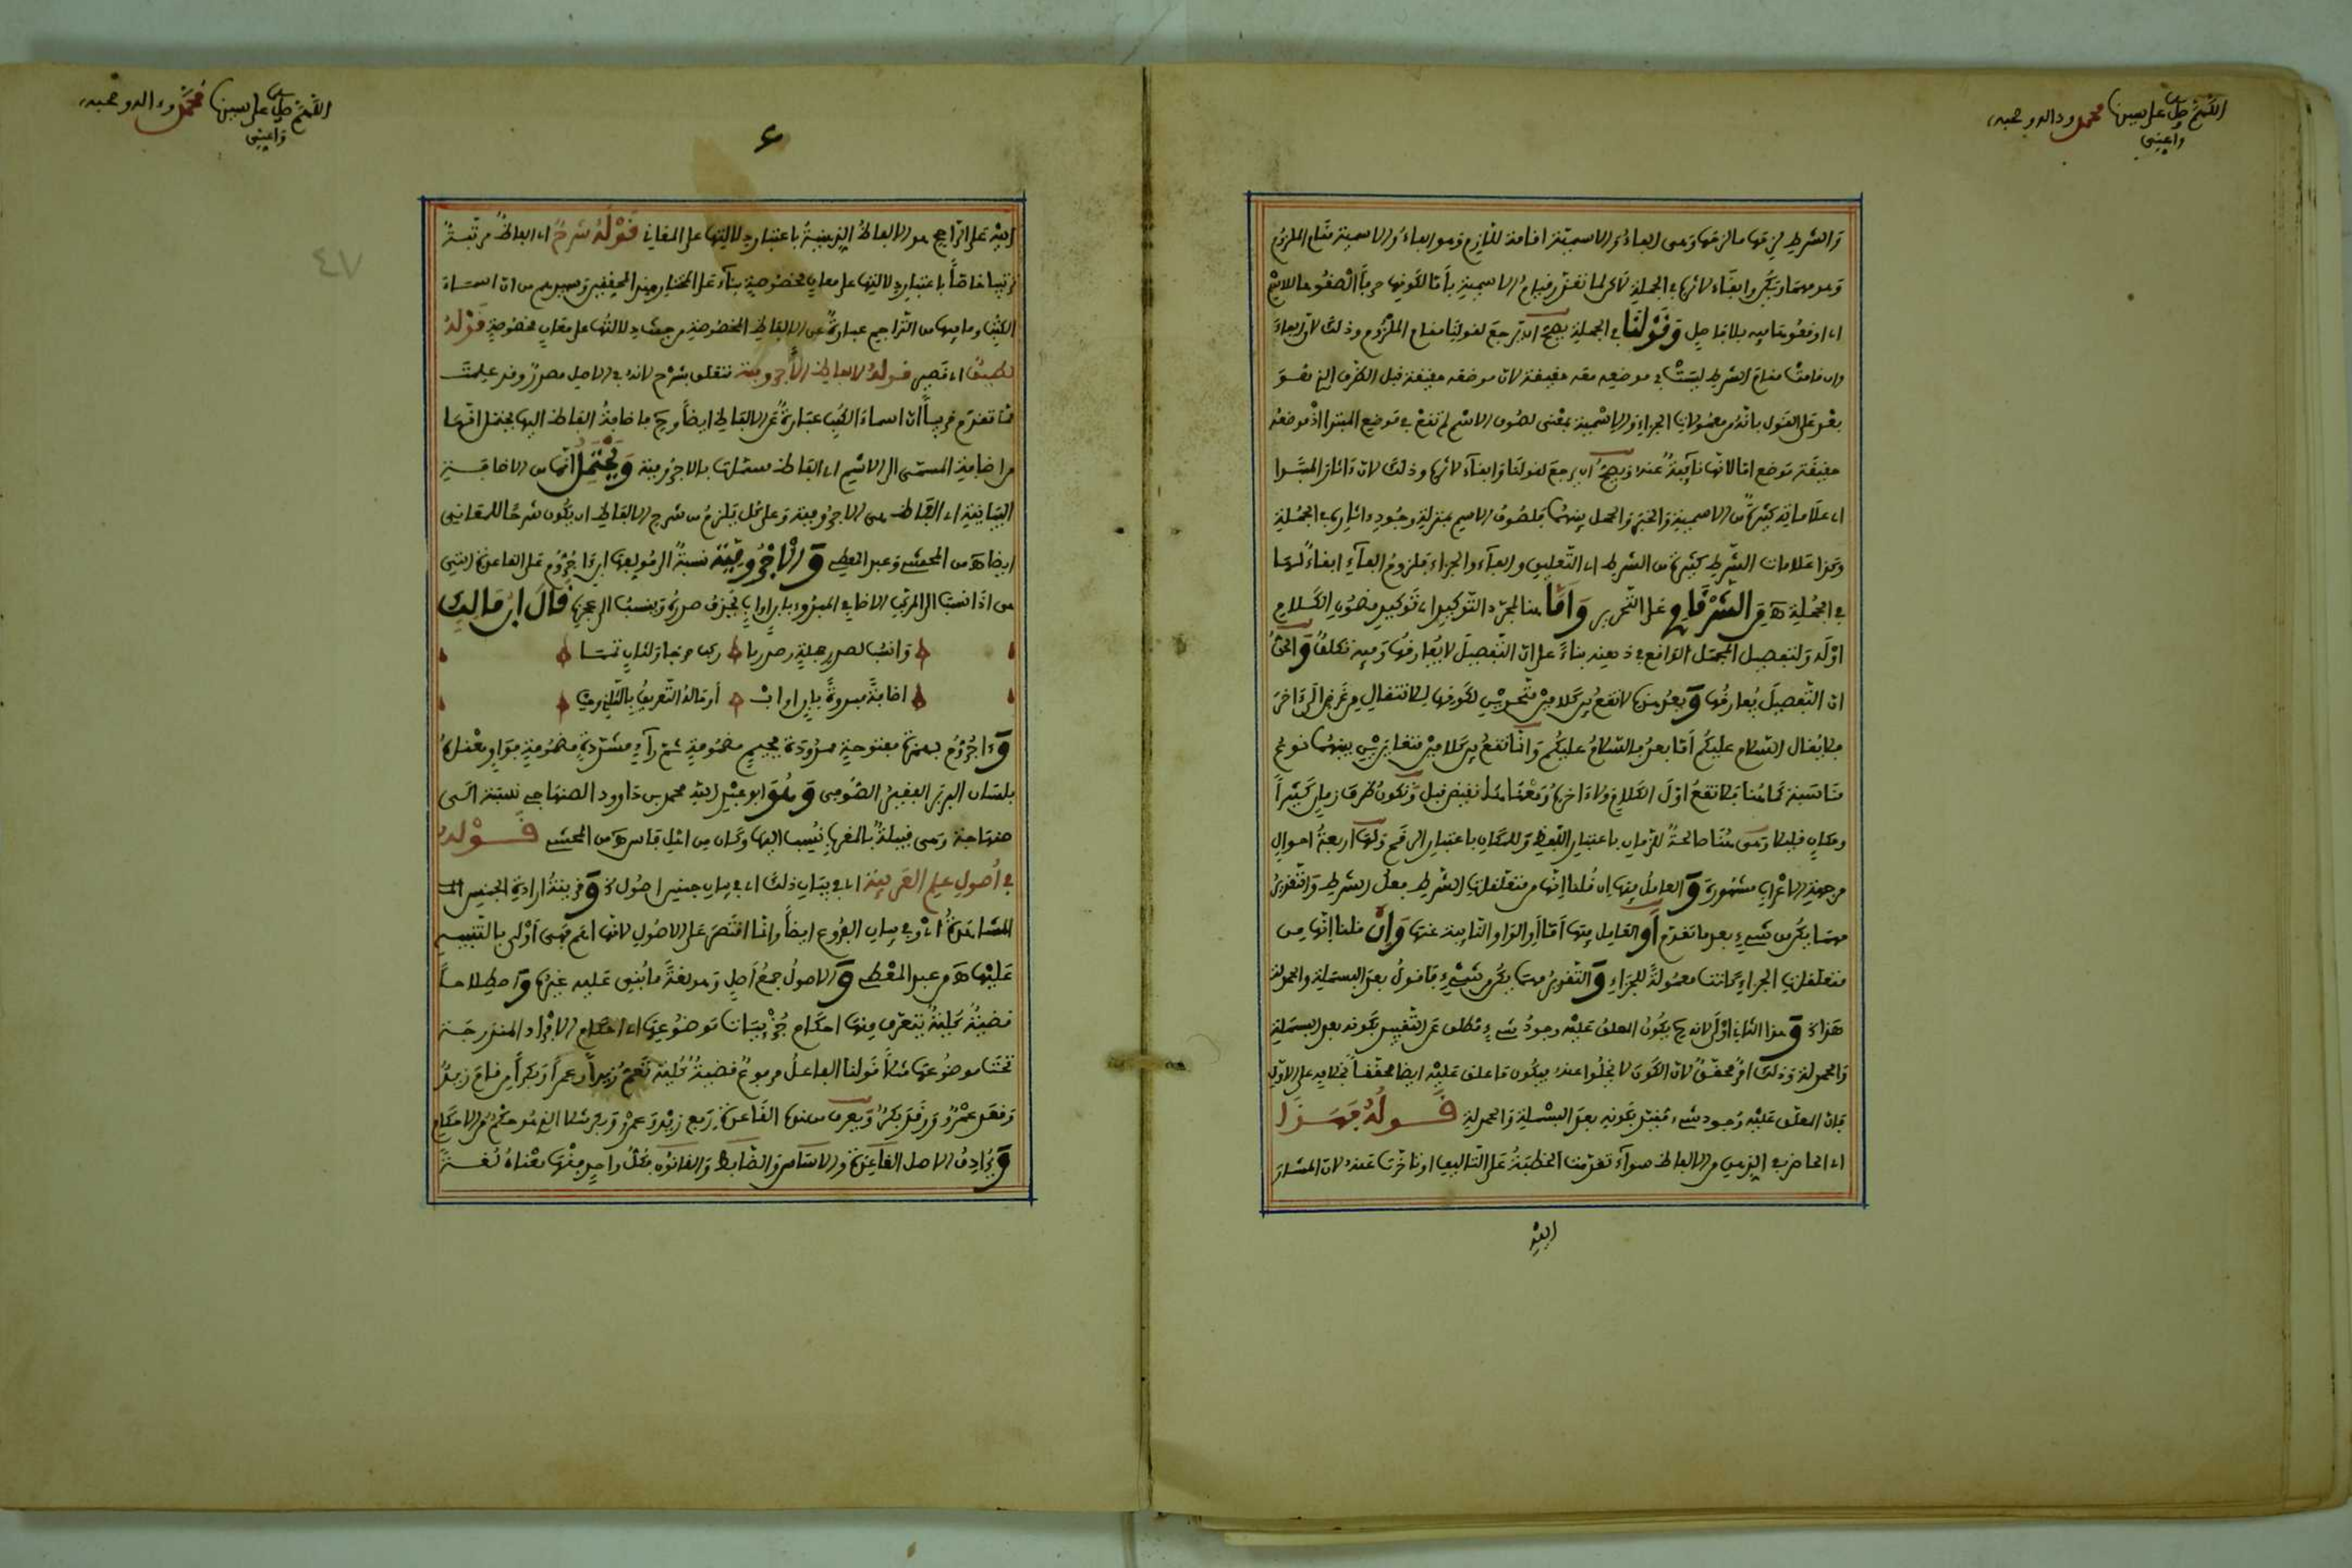 اللهم صل على سيدنا محمد وءاله وصحبه
واعيني
والشرط لزمها ما لزمها وهى الفاء والاسمية اقامة للازم وهو الفاء والاسمية مقام الملزوم
وهو مهما ويكن وابقاء لاثرها في الجملة لاكن لما تعذر قيام الاسمية باما لكونها حرفا الصقوها للاسم
اى اوقعوها فيه بلا فاصل وقولنا في الجملة يصح ان يرجع لقولنا مقام الملزوم وذلك لان
وان قامتا مقام الشرط ليستا في موضعه معه حقيقة لان موضعه حقيقة قبل الظرف الذى هو
بعد على القول بانه من معمولات الجزاء والاسمية بمعنى لصوق الاسم لم تقع في موضع المبتدا اذ موضعه
حقيقة موضع اما لانها نائبة عنه ويصح ان يرجع لقولنا وابقاء لاثرها وذلك لان ءاثار المبتدا
اى علاماته كثيرة من الاسمية والخبر والحمل بينهما فلصوق الاسم بمنزلة وجود ءاثاره في الجملة
وكذا علامات الشرط كثيرة من الشرط اى التعليق والفاء والجزاء فلزوم الفاء ابقاء لها
في الجملة ه من الشرقاوى على التحرير واما هنا لمجرد التوكيد اى توكيد مضمون الكلام
اوله ولتفصيل المجمل الواقع في ذهنه بناء على ان التفصيل لا يفارقها وفيه تكلف والحق
ان التفصيل يفارقها وبعد هذه لا تقع بين كلامين متحدين لكونها للانتقال من غرض الى ءاخر
فلا يقال السلام عليكم اما بعد فالسلام عليكم وانما تقع بين كلامين متغايرين بينهما نوع
مناسبة كما هنا فلا تقع اول الكلام ولا ءاخره ومعناها نقيض قبل وتكون ظرف زمان كثيرا
ومكان قليلا وهى هنا صالحة للزمان باعتبار اللفظ وللمكان باعتبار الرقم ولها اربعة احوال
من جهة الاعراب مشهورة والعامل فيها ان قلنا انها من متعلقات الشرط فعل الشرط والتقدير
مهما يكن من شىء بعد ما تقدم او العامل فيها اما او الواو النائبة عنها وان قلنا انها من
متعلقات الجزاء كانت معمولة للجزاء والتقدير مهما يكن من شىء فاقول بعد البسملة والحمدلة
هذا وهذا الثانى اولى لانه يكون المعلق عليه وجود شىء مطلق عن التقييد بكونه بعد البسملة
والحمدلة وذلك امر محقق لان الكون لا يخلوا عنه فيكون ما علق عليه ايضا محققا بخلافه على الاول
فان المعلق عليه وجود شىء مقيد بكونه بعد البسملة والحمدلة قوله فهذا
اى الحاضر في الذهن من الالفاظ سواء تقدمت الخطبة على التاليف او تاخرت عنه لان المشار
اليه
اللهم صل على سيدنا محمد وءاله وصحبه
واعيني
٤٧
اليه على الراجح هو الالفاظ الذهنية باعتبار دلالتها على المعانى قوله شرح اى الفاظ مرتبة
ترتيبا خاصا باعتبار دلالتها على معان مخصوصة بناء على المختار عند المحققين وغيرهم من ان اسماء
الكتب وما فيها من التراجم عبارة عن الالفاظ المخصوصة من حيث دلالتها على معان مخصوصة قوله
لطيف اى قصير قوله لالفاظ الاجرومية متعلق بشرح لانه في الاصل مصدر وقد علمت
مما تقدم قريبا ان اسماء الكتب عبارة عن الالفاظ ايضا وح فاضافة الفاظ اليها يحتمل انها
من اضافة المسمى الى الاسم اى الفاظ مسماة بالاجرومية ويحتمل انها من الاضافة
البيانية اى الفاظ هى الاجرومية وعلى كل يلزم من شرح الالفاظ ان يكون شرحا للمعانى
ايضا ه من المحشى وعبد المعطى والاجرومية نسبة الى مؤلفها ابن ءاجروم على القاعدة التى
هى اذا نسبت الى المركب الاضافى المبدوء بابن او اب تحذف صدره وتنسب الى عجزه قال ابن مالك
وانسب لصدر جملة وصدر ما ركب مزجا ولثان تمما
اضافة مبدوءة بابن او اب او ما له التعريف بالثانى وجب
وءاجروم بهمزة مفتوحة ممدودة فجيم مضمومة ثم راء مشددة مضمومة فواو فميم معناه
بلسان البربر الفقير الصوفى وهو ابو عبد الله محمد بن داوود الصنهاجى نسبة الى
صنهاجة وهى قبيلة بالمغرب نسب اليها وكان من اهل فاس ه من المحشى قوله
في اصول علم العربية اى في بيان ذلك اى في بيان جنس اصوله وقرينة ارادة الجنس
المشاهدة اى وفي بيان الفروع ايضا وانما اقتصر على الاصول لانها اهم فهى اولى بالتنبيه
عليها ه من عبد المعطى والاصول جمع اصل وهو لغة ما بنى عليه غيره واصطلاحا
قضية كلية يتعرف منها احكام جزئيات موضوعها اى احكام الافراد المندرجة
تحت موضوعها مثلا قولنا الفاعل مرفوع قضية كلية تعم زيدا وعمرا وبكرا من قام زيد
وقعد عمرو ورقد بكر ويعرف من هذه القاعدة رفع زيد وعمرو وبكر مثلا الذى هو حكم من الاحكام
ويرادف الاصل القاعدة والاساس والضابط والقانون فكل واحد منها معناه لغة